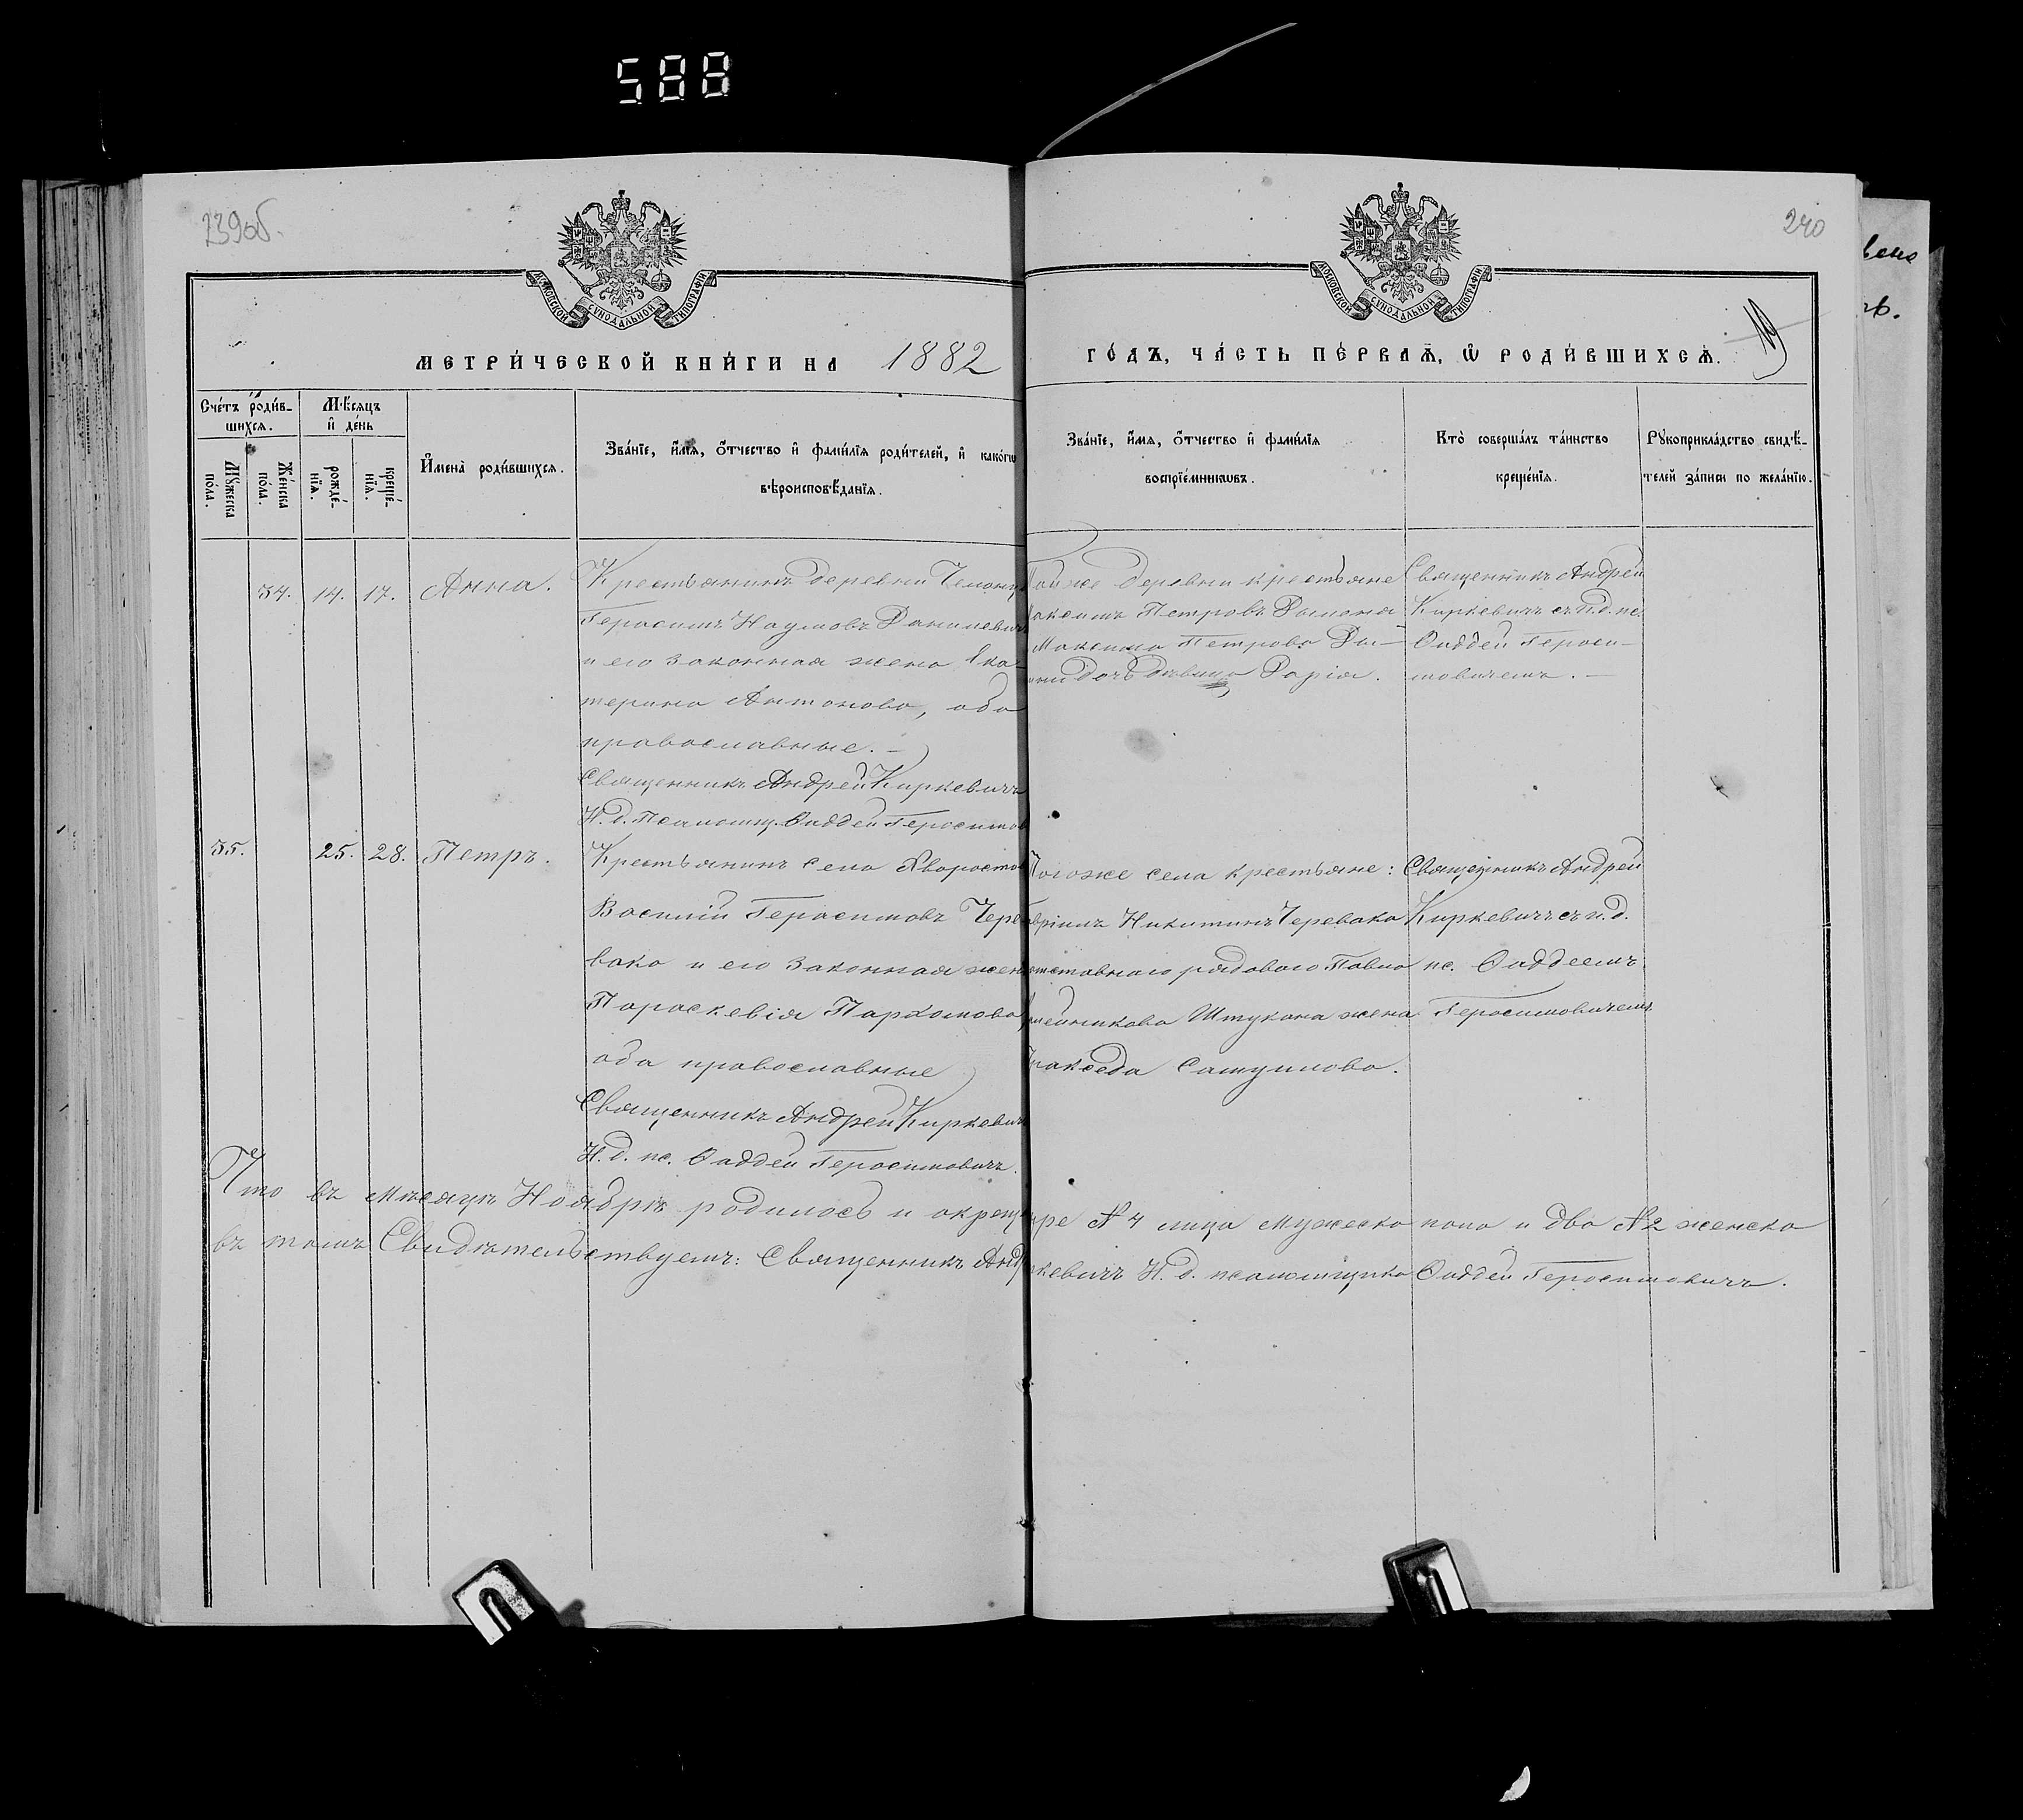 588
239об.
240
МОСКОВСКОЙ СѴНОДАЛЬНОЙ ТИПОГРАФІИ
МОСКОВСКОЙ СѴНОДАЛЬНОЙ ТИПОГРАФІИ
МЕТРИ́ЧЕСКОЙ КНИ́ГИ НА 1882
ГО́ДЪ, ЧА́СТЬ ПЕ́РВАѦ, Ѡ РОДИ́ВШИХСѦ.
Сче́тъ роди́в-
шихся.
Мѣ́сяцъ
и де́нь
Му́жеска
по́ла.
Же́нска
по́ла.
рожде́-
нїя.
креще́-
нїя.
Имена̀ роди́вшихся.
Зва́нїе, и́мя, о́тчество и фами́лїя роди́телей, и како́гѡ
вѣроисповѣ́данїя.
Зва́нїе, и́мя, о́тчество и фами́лїя
воспрїе́мникѡвъ.
Кто̀ соверша́лъ та́инство
креще́нїя.
Рукоприкла́дство свидѣ́-
телей за́писи по жела́нїю.
34. 14. 17. Анна.
Крестьянинъ деревни
Герасимъ Наумовъ
и его законная жена Ека-
терина Антонова, оба
православные. —
Священникъ Андрей Киркевичъ
Н. д. Псаломщ. Ѳаддей Герасимов
Тойже деревни крестьяне
Максимъ Петровъ
Максима Петрова
дочь дѣвица Дарія.
Священникъ Андрей
Киркевичъ съ и.д. пс.
Ѳаддей Гераси-
мовичемъ. —
35. 25. 28. Петръ.
Крестьянинъ села Хворосто
Василій Герасимовъ Чере
вако и его законная жен
Параскевія Пархомова
оба православные
Священникъ Андрей Киркевичъ
Н. д. пс. Ѳаддей Герасимовичъ.
Тогоже села крестьяне:
Никитинъ Черевако
отставнаго рядоваго Павла
Штукана жена
Самуилова.
Священникъ Андрей
Киркевичъ съ и.д.
пс. Ѳаддеемъ
Герасимовичемъ
Что въ мѣсяцѣ Ноябрѣ родилось и окрещ ыре № 4 лица мужеска пола и два № 2 женска
въ томъ Свидѣтельствуемъ: Священникъ Андр ркевичъ Н. д. псаломщика Ѳаддей Герасимовичъ.